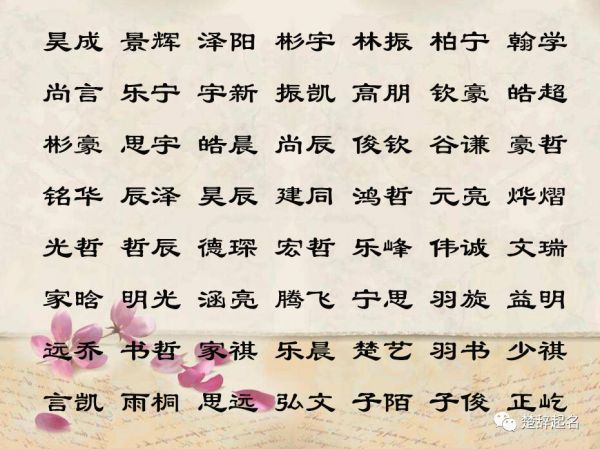 昊成 景辉 泽阳 彬宇 林振 柏宁 翰学
尚言 乐宁 宇新 振凯 高朋 钦豪 皓超
彬豪 思宇 皓晨 尚辰 俊钦 谷谦 豪哲
铭华 辰泽 昊辰 建同 鸿哲 元亮 烨熠
光哲 哲辰 德琛 宏哲 乐峰 伟诚 文瑞
家晗 明光 涵亮 腾飞 宁思 羽旋 益明
远乔 书哲 家祺 乐晨 楚艺 羽书 少祺
言凯 雨桐 思远 弘文 子陌 子俊 正屹
楚辞起名